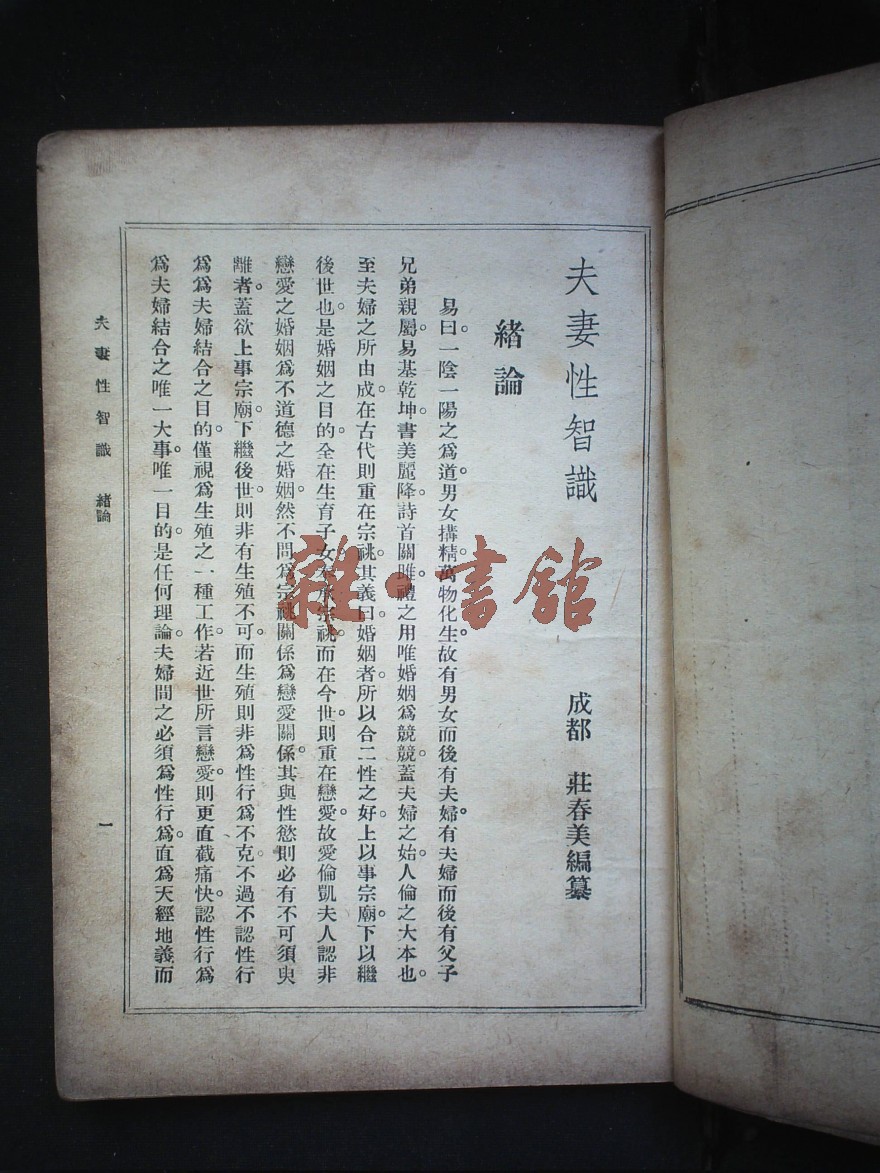 夫妻性智識
成都　莊春美編纂
緒論
易曰。一陰一陽之爲道。男女搆精。萬物化生。故有男女而後有夫婦。有夫婦而後有父子
兄弟親屬。易基乾坤。書美釐降。詩首關雎。禮之用唯婚姻爲競競。蓋夫婦之始。人倫之大本也。
至夫婦之所由成。在古代則重在宗祧。其義曰婚姻者。所以合二性之好。上以事宗廟。下以繼
後世也。是婚姻之目的。全在生育子女。宗祧而在今世。則重在戀愛。故愛倫凱夫人認非
戀愛之婚姻。爲不道德之婚姻。然不問爲宗祧關係。爲戀愛關係。其與性慾則必有不可須臾
離者。蓋欲上事宗廟。下繼後世。則非有生殖不可。而生殖則非爲性行爲不克。不過不認性行
爲爲夫婦結合之目的。僅視爲生殖之一種工作。若近世所言戀愛。則更直截痛快。認性行爲
爲夫婦結合之唯一大事。唯一目的。是任何理論。夫婦間之必須爲性行爲。直爲天經地義。而
夫妻性智識　緒論
一
雜·書館